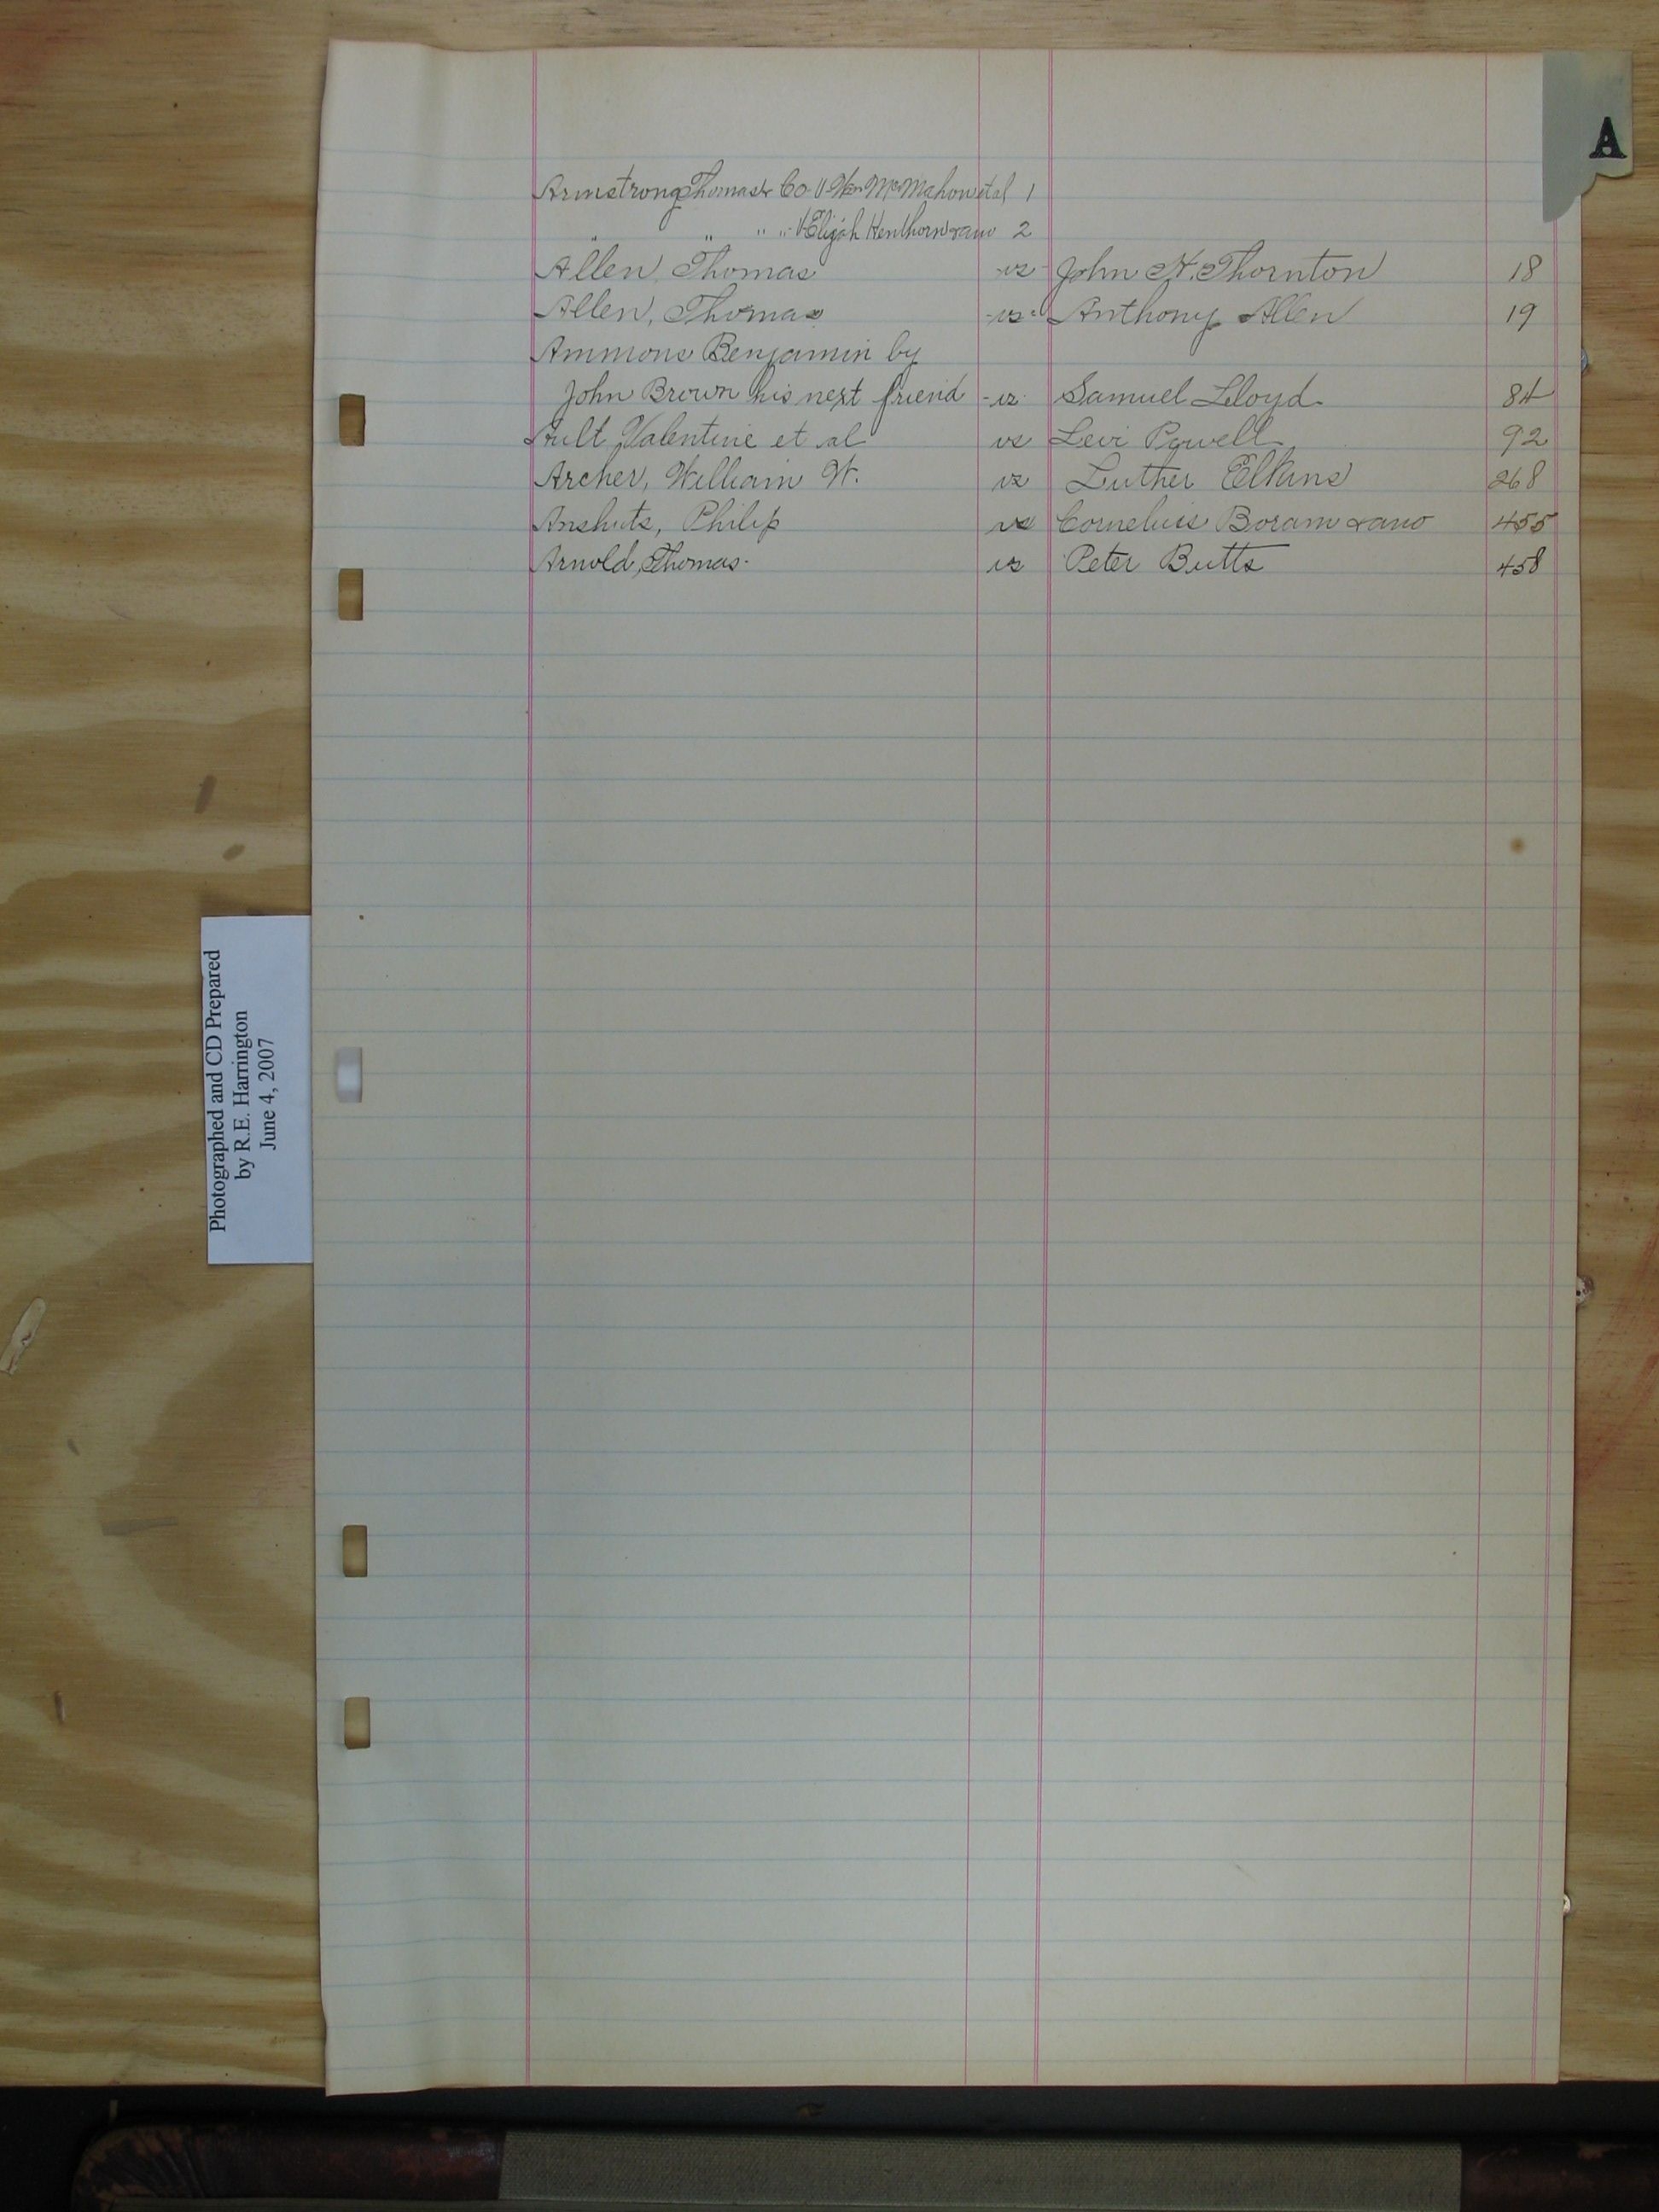 A
Armstrong Thomas & Co. V. Wm McMahon et al 1
" " " " V Elijah Henthorn & ano 2
Allen, Thomas -vs- John H. Thornton 18
Allen, Thomas -vs- Anthony Allen 19
Ammons Benjamin by
John Brown his next friend -vs- Samuel Lloyd. 84
Ault, Valentine et al vs Levi Powell 92
Archer, William W. vs Luther Elkins 268
Anshuts, Philip vs Cornelius Boram & ano 455
Arnold, Thomas. vs Peter Butts 458
Photographed and CD Prepared
by R.E. Harrington
June 4, 2007